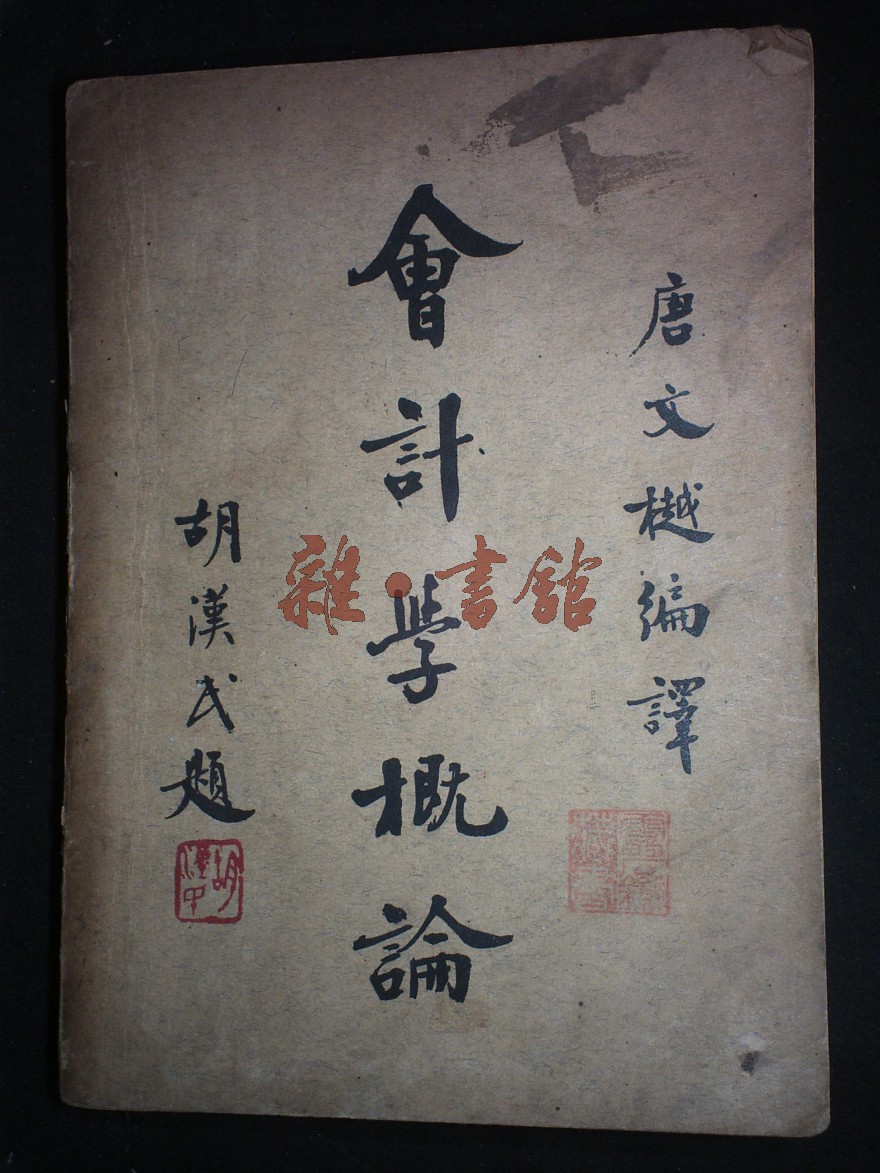 唐文樾編譯
會計學概論
胡漢民題
雜·書館